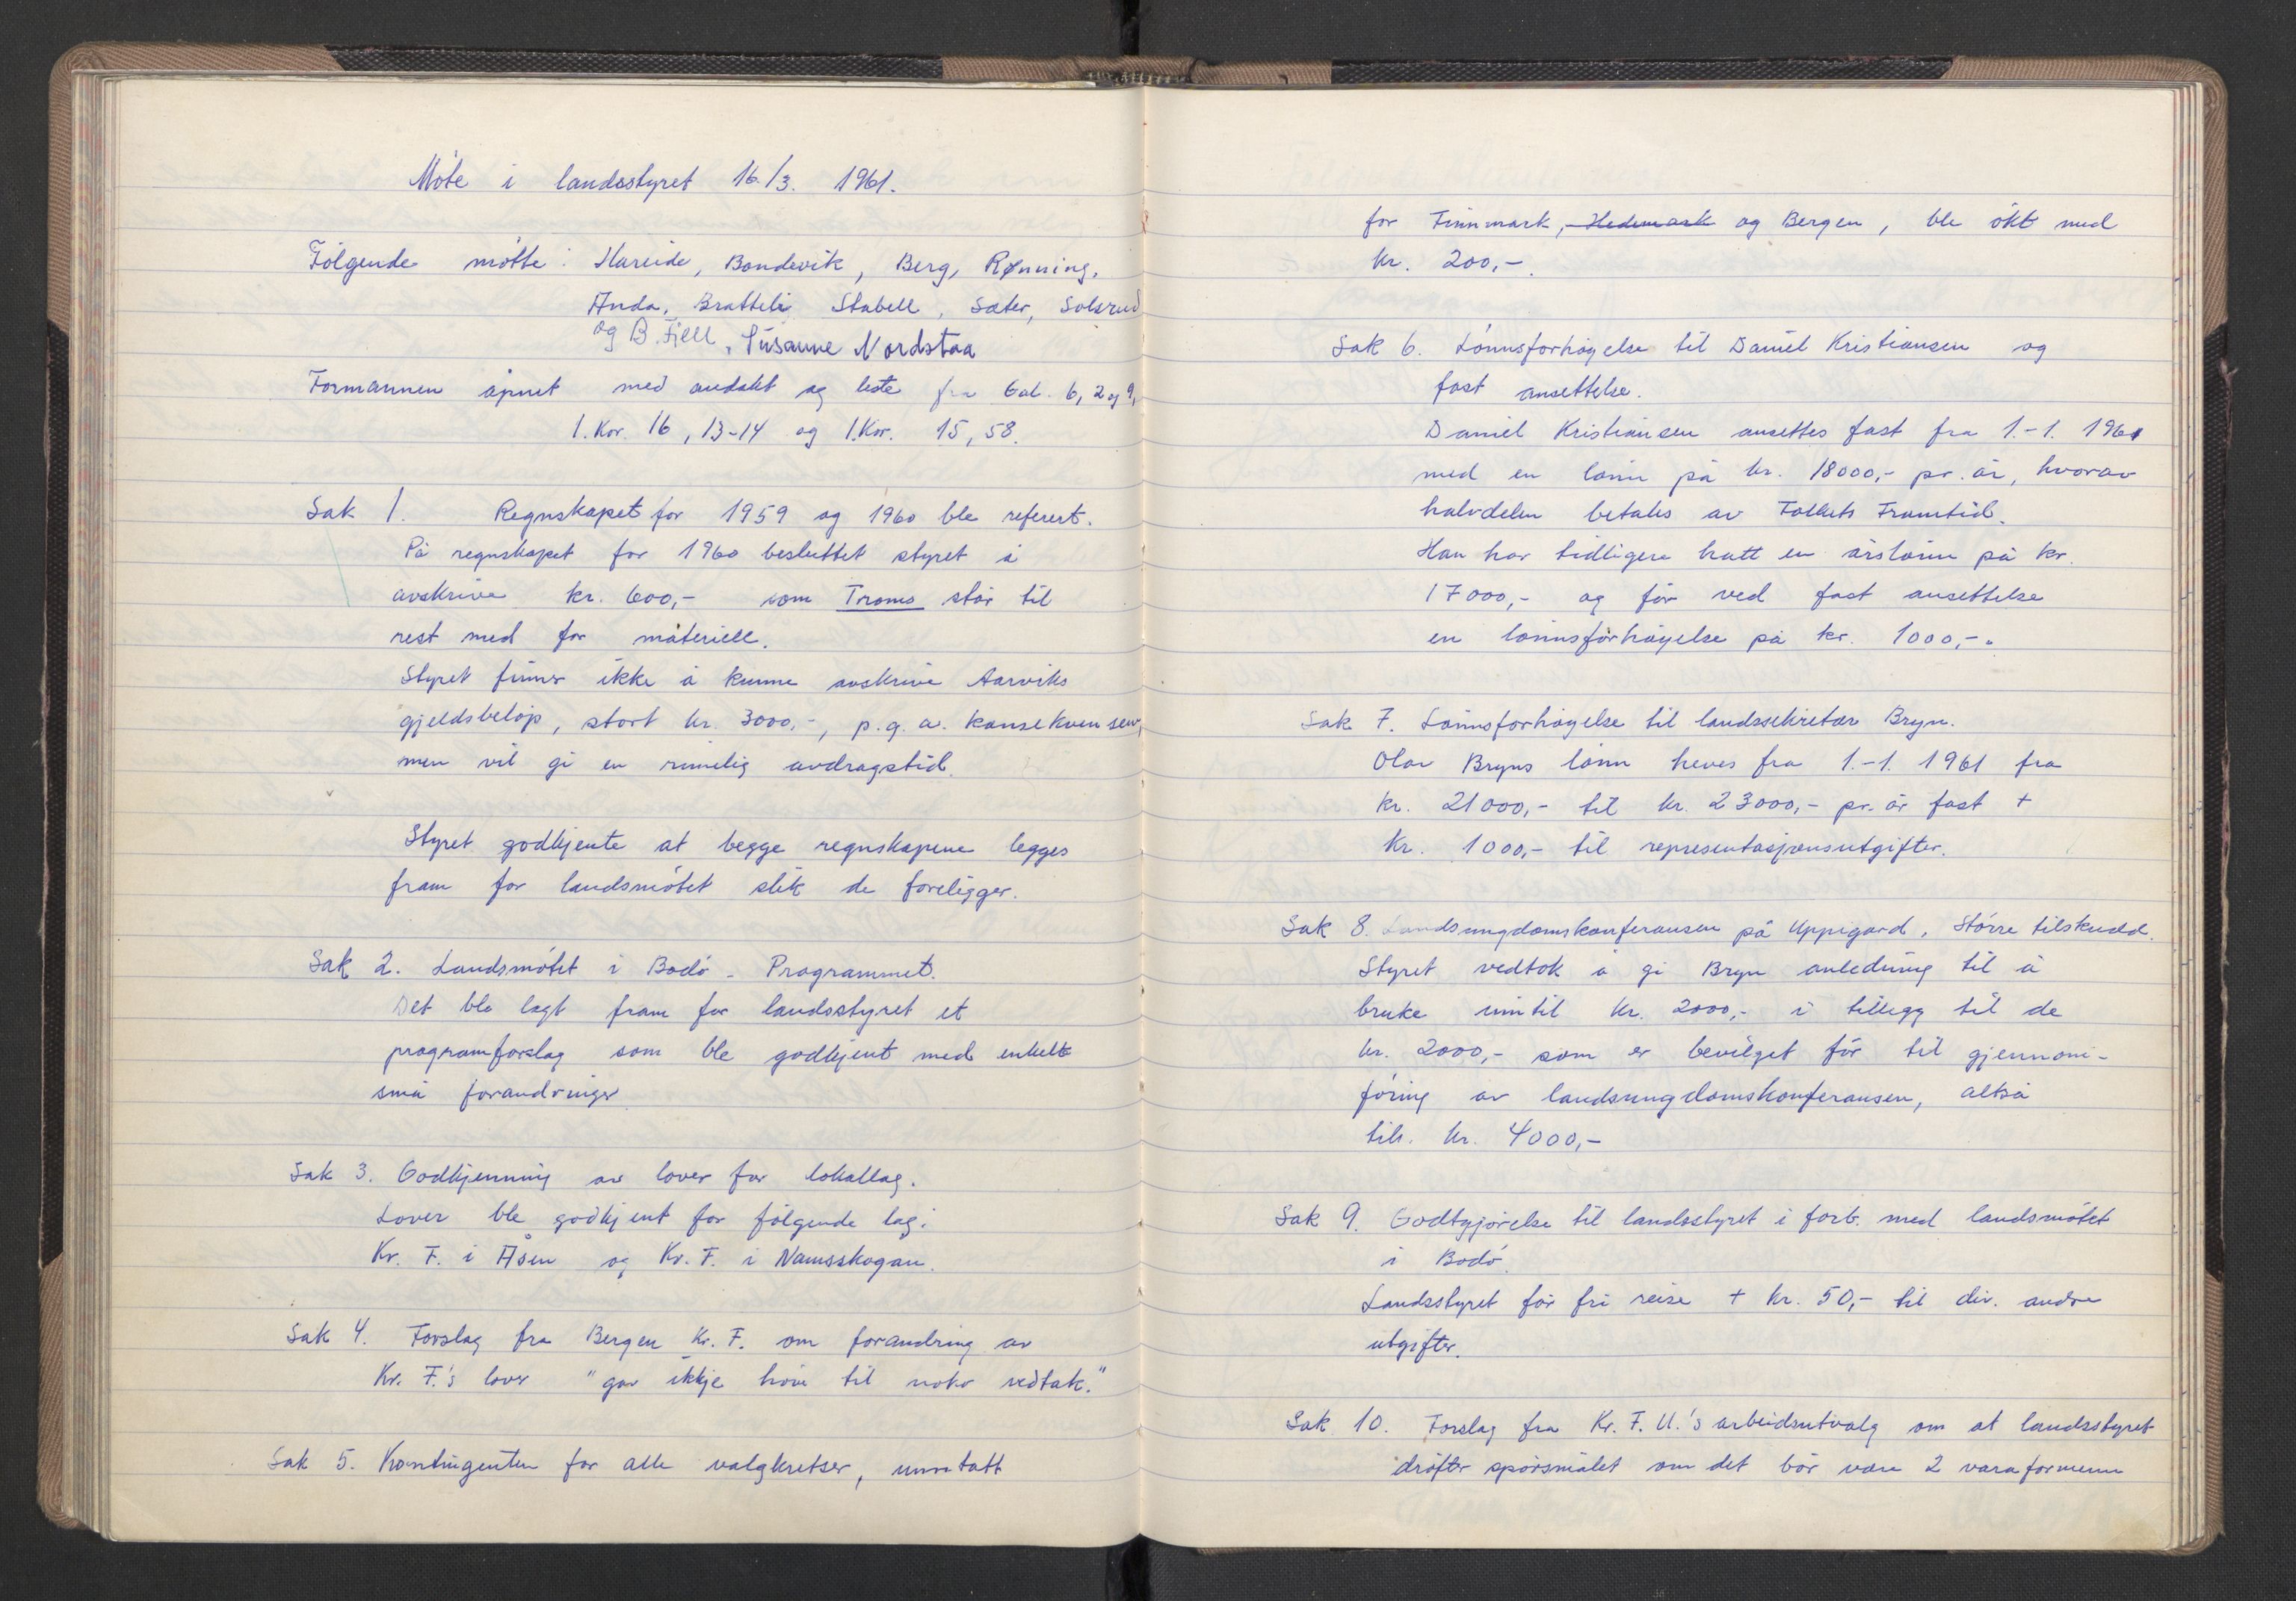 Møte i landsstyret 16./3. 1961.
Følgende møtte: Hareide, Bondevik, Berg, Rønning,
Anda, Bratteli, Stabell, Sæter, Solsrud
og B. Fjell, Susanne Nordstaa
Formannen åpnet med andakt og leste fra Gal. 6, 2 og 9,
1. Kor. 16, 13-14 og 1. Kor. 15, 58.
Sak 1. Regnskapet for 1959 og 1960 ble referert.
På regnskapet for 1960 besluttet styret å
avskrive kr. 600,- som Troms står til
rest med for materiell.
Styret finner ikke å kunne avskrive Aarviks
gjeldsbeløp, stort kr. 3000,-, p.g.a. konsekvensen,
men vil gi en rimelig avdragstid.
Styret godkjente at begge regnskapene legges
fram for landsmøtet slik de foreligger.
Sak 2. Landsmøtet i Bodø - Programmet.
Det ble lagt fram for landsstyret et
programforslag som ble godkjent med enkelte
små forandringer
Sak 3. Godkjenning av lover for lokallag.
Lover ble godkjent for følgende lag:
Kr. F. i Åsen og Kr. F. i Namsskogan.
Sak 4. Forslag fra Bergen Kr. F. om forandring av
Kr. F.'s lover "gav ikkje høve til noko vedtak."
Sak 5. Kontingenten for alle valgkretser, unntatt
for Finnmark, Hedemark og Bergen, ble økt med
kr. 200,-.
Sak 6. Lønnsforhøyelse til Daniel Kristiansen og
fast ansettelse.
Daniel Kristiansen ansettes fast fra 1.-1. 1961
med en lønn på kr. 18000,- pr. år, hvorav
halvdelen betales av Folkets Framtid.
Han har tidligere hatt en årslønn på kr.
17000,- og får ved fast ansettelse
en lønnsforhøyelse på kr. 1000,-.
Sak 7. Lønnsforhøyelse til landssekretær Bryn.
Olav Bryns lønn heves fra 1.-1. 1961 fra
kr. 21000,- til kr. 23000,- pr. år fast +
kr. 1000,- til representasjonsutgifter.
Sak 8. Landsungdomskonferansen på Uppigard, Større tilskudd.
Styret vedtok å gi Bryn anledning til å
bruke inntil kr. 2000,- i tillegg til de
kr. 2000,- som er bevilget før til gjennom-
føring av landsungdomskonferansen, altså
tils. kr. 4000,-
Sak 9. Godtgjørelse til landsstyret i forb. med landsmøtet
i Bodø.
Landsstyret får fri reise + kr. 50,- til div. andre
utgifter.
Sak 10. Forslag fra Kr. F. U.'s arbeidsutvalg om at landsstyret
drøfter spørsmålet om det bør være 2 varaformenn